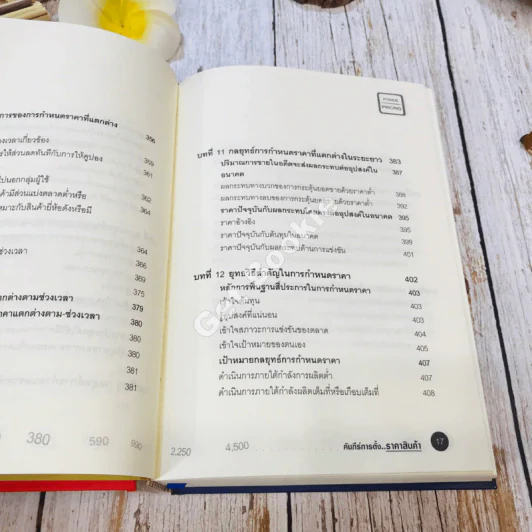 การของการกำหนดราคาที่แตกต่าง
356
359
ไปนอกกลุ่มผู้ใช้
362
364
364
ช่วงเวลา
369
375
379
380
380
381
381
380 590 590
POWER
PRICING
บทที่ 11 กลยุทธ์การกำหนดราคาที่แตกต่างในระยะยาว 383
ปริมาณการขายในอดีตจะส่งผลกระทบต่ออุปสงค์ใน
อนาคต 387
ผลกระทบทางบวกของการกระตุ้นยอดขายด้วยราคาต่ำ 388
ผลกระทบทางลบของการกระตุ้นยอดขายด้วยราคาต่ำ
ราคาปัจจุบันกับผลกระทบโดยตรงต่ออุปสงค์ในอนาคต 395
ราคาอ้างอิง 395
ราคาปัจจุบันกับต้นทุนในอนาคต
ราคาปัจจุบันกับผลกระทบด้านการแข่งขัน 401
บทที่ 12 ยุทธวิธีสำคัญในการกำหนดราคา 402
หลักการพื้นฐานสี่ประการในการกำหนดราคา 403
เข้าใจต้นทุน 403
อุปสงค์ที่แน่นอน 403
เข้าใจสภาวะการแข่งขันของตลาด 404
เข้าใจเป้าหมายของตนเอง 405
เป้าหมายกลยุทธ์การกำหนดราคา 407
ดำเนินการภายใต้กำลังการผลิตต่ำ 407
ดำเนินการภายใต้กำลังการผลิตเต็มที่หรือเกือบเต็มที่ 408
2,250 4,500 คัมภีร์การตั้ง..ราคาสินค้า 17